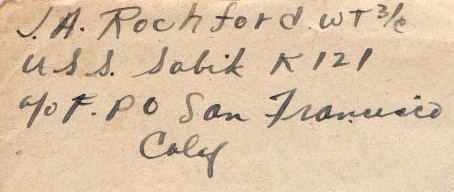 J. A. Rochford. WT 3/c
U.S.S. Sabik K 121
c/o F. PO San Francisco
Calif